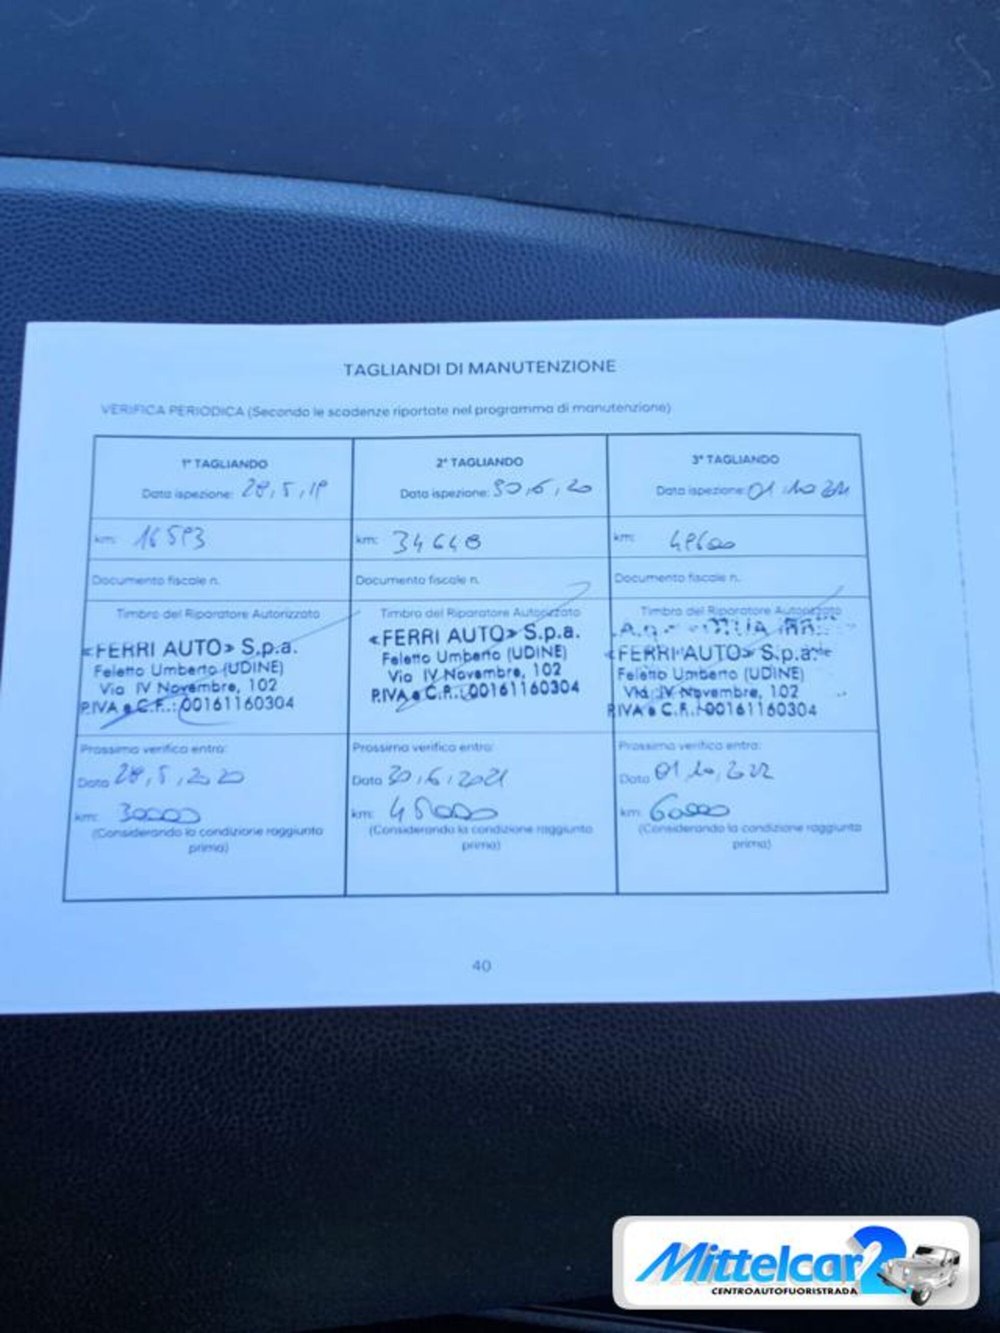 TAGLIANDI DI MANUTENZIONE
VERIFICA PERIODICA (Secondo le scadenze riportate nel programma di manutenzione)
1° TAGLIANDO
Data ispezione: 28,5,19
km: 16593
Documento fiscale n.
Timbro del Riparatore Autorizzato
«FERRI AUTO» S.p.a.
Feletto Umberto (UDINE)
Via IV Novembre, 102
P.IVA e C.F.: 00161160304
Prossima verifica entro:
Data 28,5,2020
km: 30000
(Considerando la condizione raggiunta
prima)
2° TAGLIANDO
Data ispezione: 30,6,20
km: 34648
Documento fiscale n.
Timbro del Riparatore Autorizzato
«FERRI AUTO» S.p.a.
Feletto Umberto (UDINE)
Via IV Novembre, 102
P.IVA e C.F.: 00161160304
Prossima verifica entro:
Data 30,6,2021
km: 45000
(Considerando la condizione raggiunta
prima)
3° TAGLIANDO
Data ispezione: 01.10
km:
Documento fiscale n.
Timbro del Riparatore Autorizzato
«FERRI AUTO» S.p.a.
Feletto Umberto (UDINE)
Via IV Novembre, 102
P.IVA e C.F.: 00161160304
Prossima verifica entro:
Data 01,10,2022
km: 60000
(Considerando la condizione raggiunta
prima)
40
Mittelcar2
CENTROAUTOFUORISTRADA